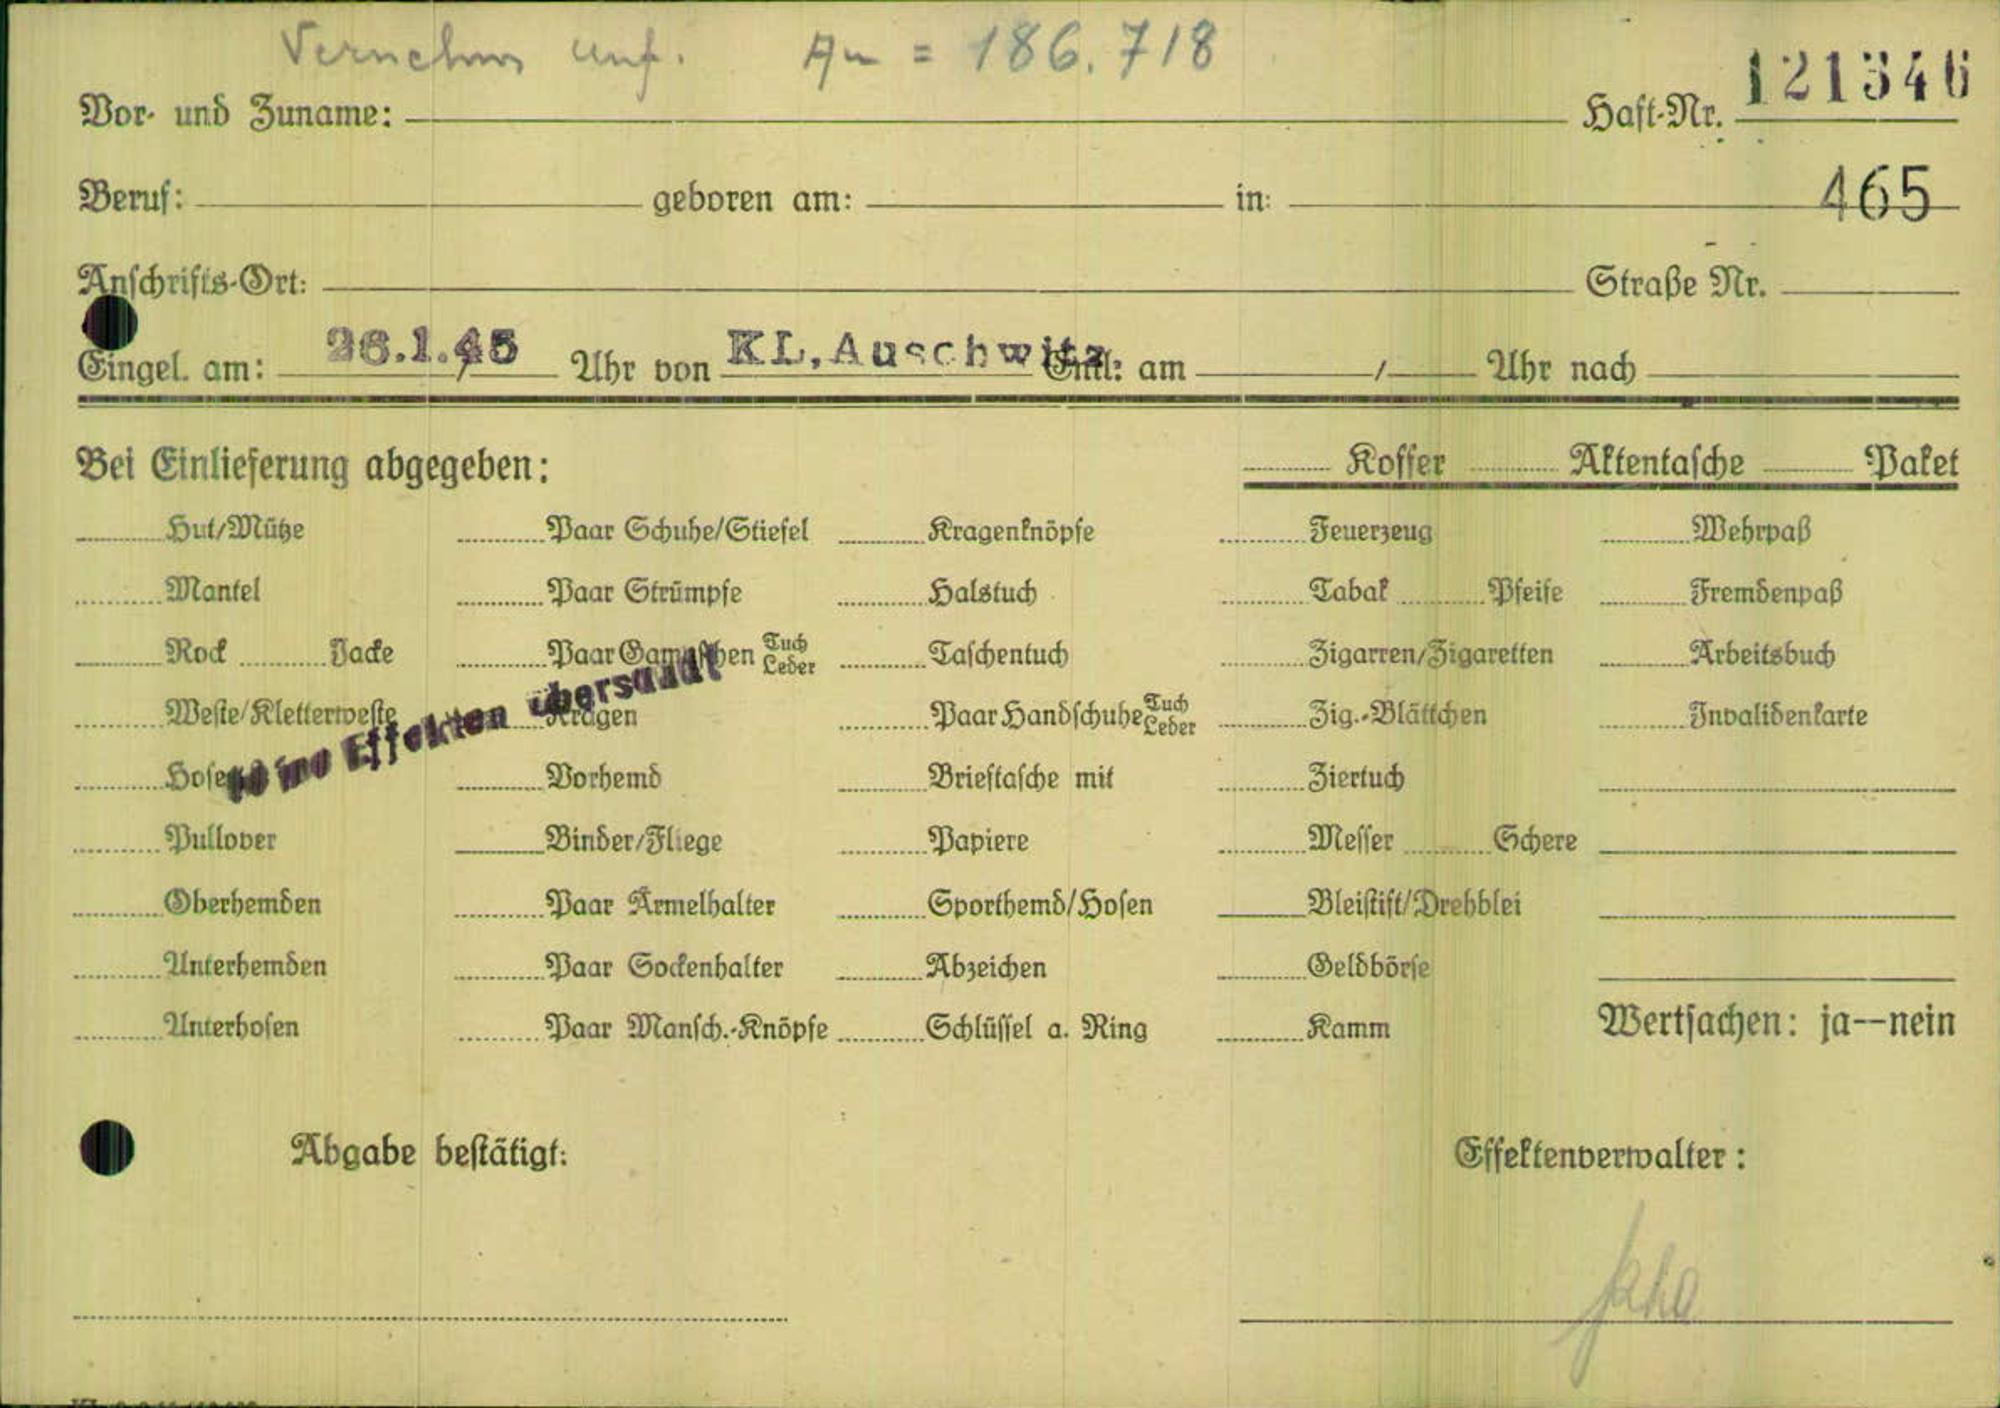 Vernehm unf. Au = 186.718
Vor- und Zuname: Haft-Nr. 121346
Beruf: geboren am: in: 465
Anschrifts-Ort: Straße Nr.
Eingel. am: 26.1.45 Uhr von KL. Auschwitz Entl: am / Uhr nach
Bei Einlieferung abgegeben: Koffer Aktentasche Paket
Hut/Mütze Paar Schuhe/Stiefel Kragenknöpfe Feuerzeug Wehrpaß
Mantel Paar Strümpfe Halstuch Tabak Pfeife Fremdenpaß
Rock Jacke Paar Gamaschen Tuch Leder Taschentuch Zigarren/Zigaretten Arbeitsbuch
Weste/Kletterweste Kragen Paar Handschuhe Tuch Leder Zig.-Blättchen Invalidenkarte
keine Effekten übersandt
Hosen Vorhemd Brieftasche mit Ziertuch
Pullover Binder/Fliege Papiere Messer Schere
Oberhemden Paar Ärmelhalter Sporthemd/Hosen Bleistift/Drehblei
Unterhemden Paar Sockenhalter Abzeichen Geldbörse
Unterhosen Paar Mansch.-Knöpfe Schlüssel a. Ring Kamm Wertsachen: ja--nein
Abgabe bestätigt: Effektenverwalter: